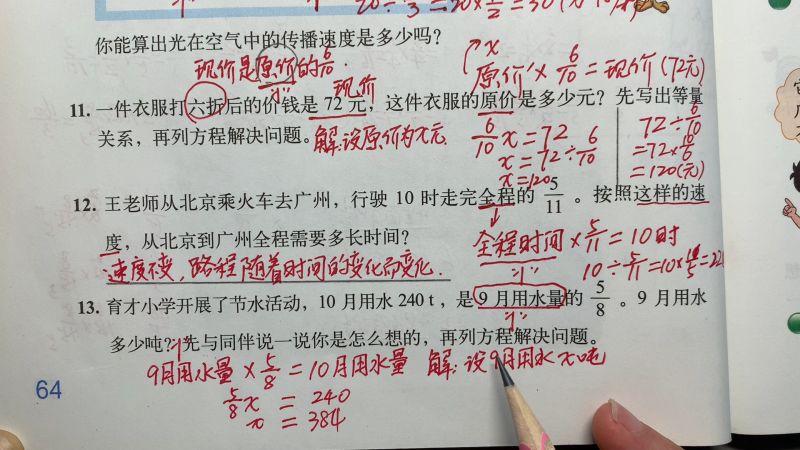 你能算出光在空气中的传播速度是多少吗？
现价是原价的6/10.
x
原价×6/10=现价(72元)
现价
"1"
11. 一件衣服打六折后的价钱是 72 元，这件衣服的原价是多少元？先写出等量
关系，再列方程解决问题。
解:设原价为x元
6/10x=72
x=72÷6/10
x=120
72÷6/10
=72×10/6
=120(元)
12. 王老师从北京乘火车去广州，行驶 10 时走完全程的 5/11 。按照这样的速
度，从北京到广州全程需要多长时间？
全程时间×5/11=10时
"1"
速度不变,路程随着时间的变化而变化.
10÷5/11=10×11/5=22
13. 育才小学开展了节水活动，10 月用水 240 t，是 9 月用水量的 5/8 。9 月用水
"1"
多少吨？先与同伴说一说你是怎么想的，再列方程解决问题。
"1"
9月用水量×5/8=10月用水量
解:设9月用水x吨
5/8x=240
x=384
64